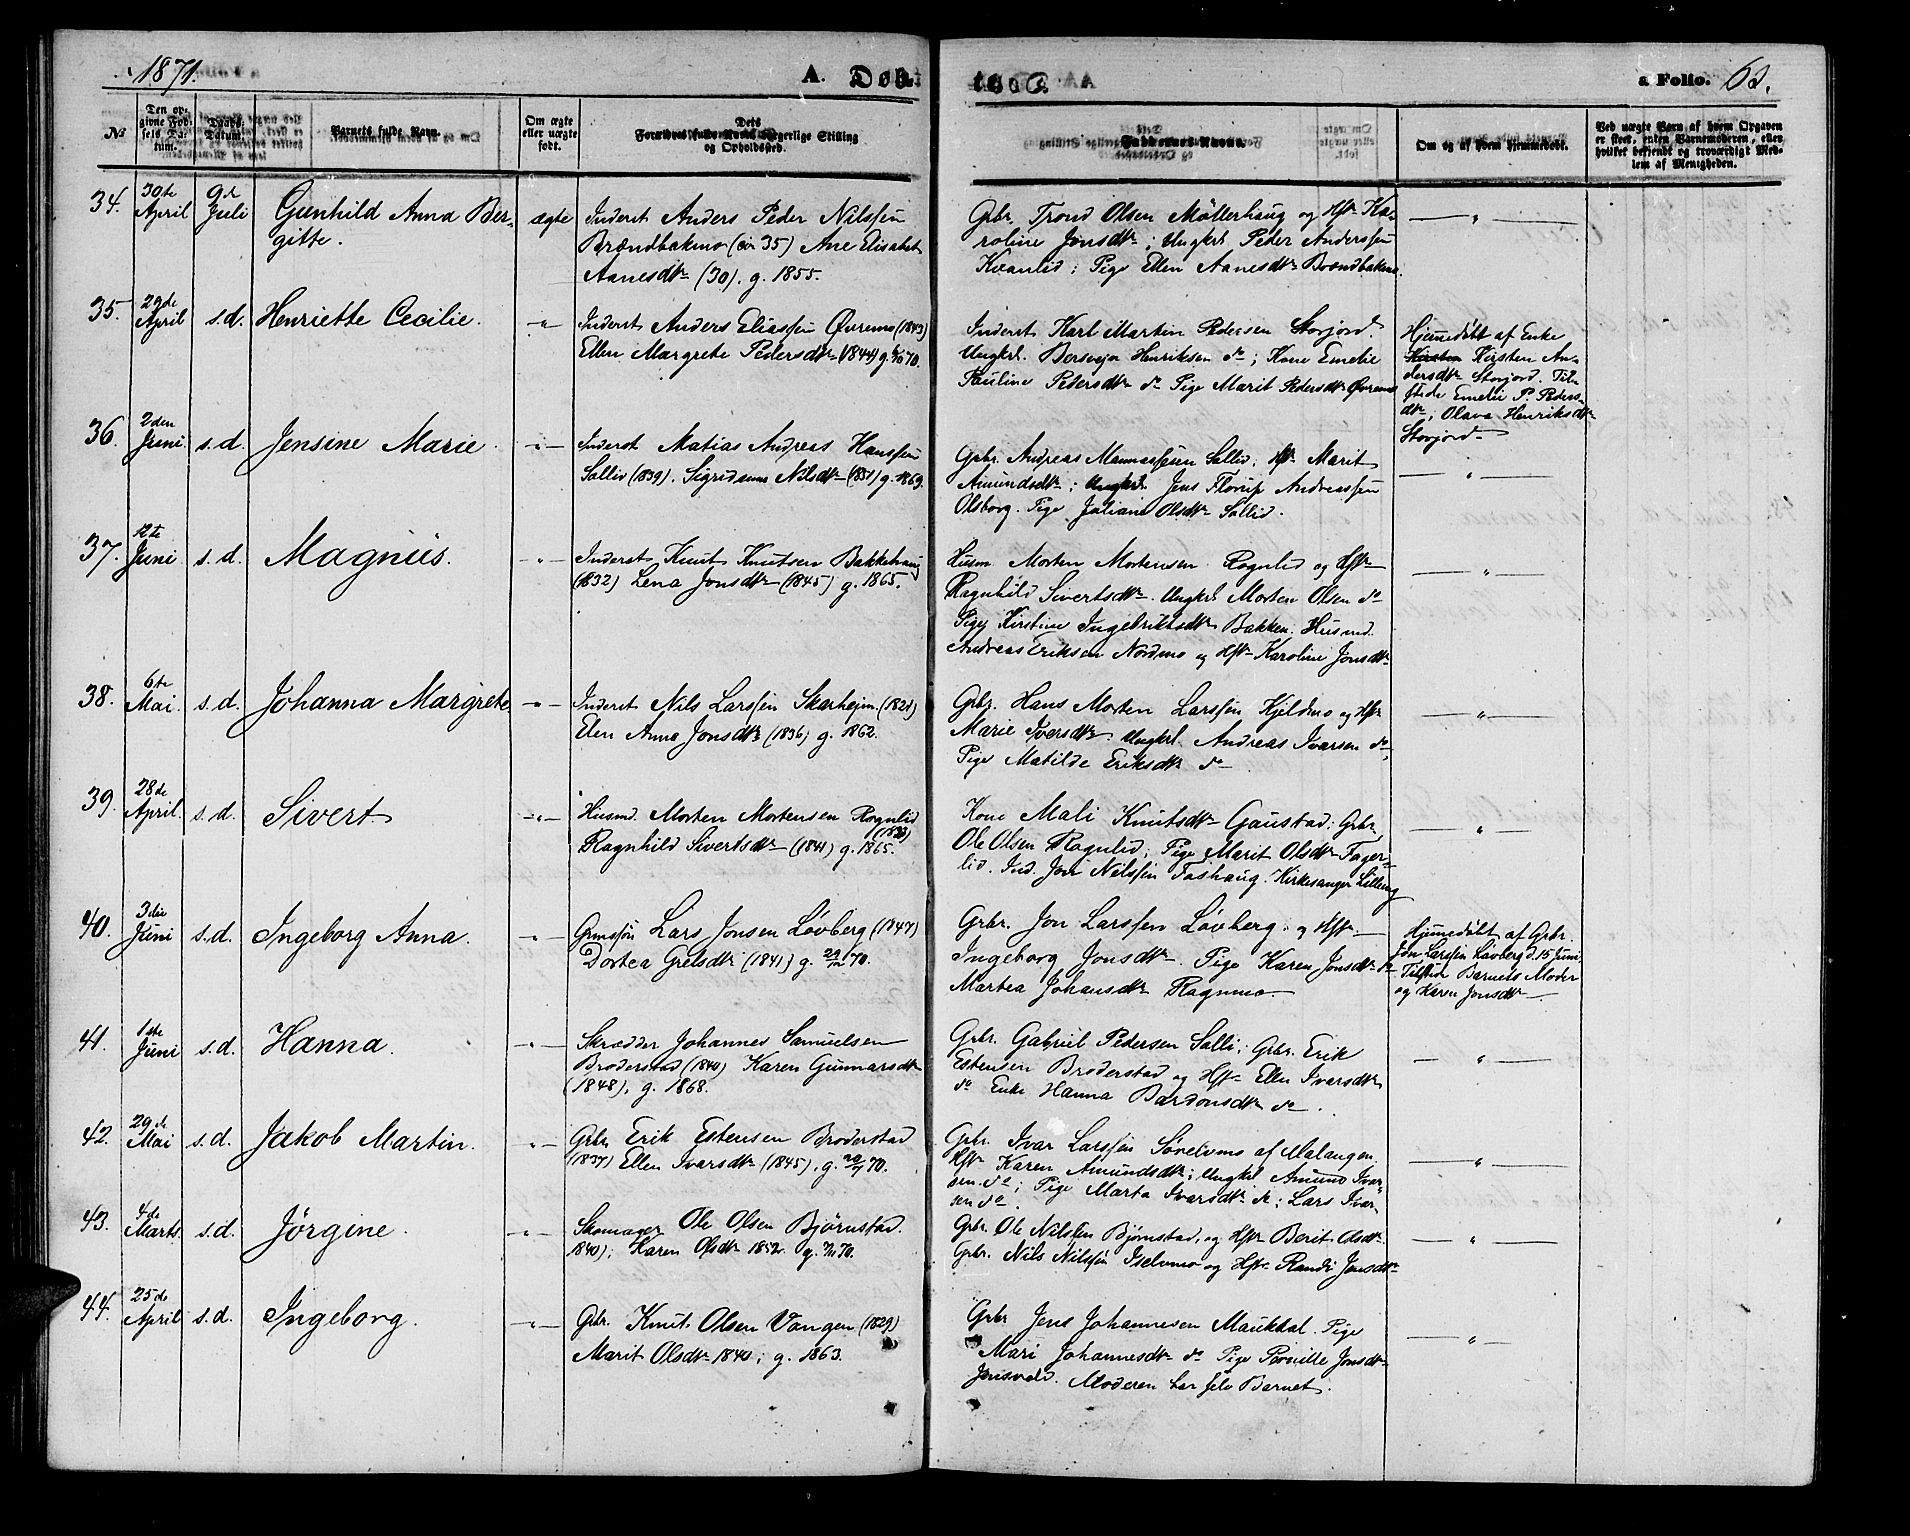 1871.
A. Døb
a Folio. 62.
№
Den opgivne Fødsels Datum.
Daabs Datum.
Barnets fulde Navn.
Om ægte eller uægte født.
Dets Forældres fulde Navn borgerlige Stilling og Opholdssted.
Faddernes Navne.
Om og af hvem hjemmedøbt.
Ved uægte Barn af hvem Opgaven er skeet, enten Barnemoderen, eller hvilket bekjendt og troværdigt Medlem af Menigheden.
34. 30te April 9de Juli Gunhild Anna Bergitte. ægte
Inderst Anders Peder Nilssen
Brændbakmo (cir 35) Ane Elisabet
Aanesdtr (30). g. 1855.
Grbr. Trond Olsen Möllerhaug og Hstr Ka-
roline Jonsdtr; Ungkrl Peder Anderssen
Kvanlid; Pige Ellen Aanesdtr Brændbakmo.
35. 29de April s.d. Henriette Cecilie. -"-
Inderst Anders Eliassen Øvremo (1843)
Ellen Margrete Pedersdtr (1844) g. 70.
Inderst Karl Martin Pedersen Storjord.
Ungkrl. Bersvejn Henriksen do; Kone Emelie
Pauline Pedersdtr do Pige Marit Pedersdtr Øvremo
Hjemmedøbt af Enke
Kirsten Kirsten An-
dersdtr Storjord. Til-
stede Emelie P. Peders-
dtr; Olava Henriksdtr
Storjord
36. 2den Juni. s.d Jensine Marie. -"-
Inderst Matias Andreas Hanssen
Sollid (1839). Sigridanna Nilsdtr (1851) g. 1869.
Grbr. Andreas Mannassesen Sollid; Hstr Marit
Amundsdtr; Ungkrl. Jens Florup Andreassen
Olsborg. Pige Juliane Olsdtr Sollid.
37. 12te Juni s.d. Magnus. -"-
Inderst Knut Knutsen Bakkehaug
(1832) Lena Jonsdtr (1845) g. 1865.
Husm Morten Mortensen Rognlid og Hstr
Ragnhild Sivertsdtr. Ungkrl Morten Olsen do
Pige Kirstine Ingebriktsdtr Bakken. Husmd.
Andreas Eriksen Nordmo og Hstr Karoline Jonsdtr
38. 6te Mai. s.d. Johanna Margrete. -"-
Inderst Nils Larssen Skarhejm (1828)
Elen Anna Jonsdtr (1836) g. 1862.
Grbr. Hans Morten Larssen Kjeldmo og Hstr
Marie Iversdtr. Ungkrl. Andreas Ivarsen do,
Pige Matilde Eriksdtr do
39. 28de April. s.d. Sivert -"-
Husmd. Morten Mortensen Rognlid
(1833)
Ragnhild Sivertsdtr (1841) g. 1865.
Kone Mali Knutsdtr Gaustad; Grbr.
Ole Olsen Rognlid; Pige Marit Olsdtr Fager-
lid. Ind. Jon Nilssen Foshaug. Kirkesanger Lilleng
40. 3die Juni s.d. Ingeborg Anna. -"-
Grmssøn Lars Jonsen Løvberg (1847)
Dortea Gretsdtr (1841) g. 29/12 70.
Grbr. Jon Larssen Løvberg. og Hstr
Ingeborg Jonsdtr. Pige Karen Jonsdtr do
Martea Johansdtr Ragnmo.
Hjemmedøbt af Grbr
Jon Larssen Løvberg d. 15 Juni
Tilstede Barnets Moder
og Karen Jonsdtr
41. 1ste Juni s.d. Hanna. -"-
Skrædder Johannes Samuelsen
Broderstad (1840) Karen Gunnarsdtr
(1848), g. 1868.
Grbr. Gabriel Pedersen Solli; Grbr. Erik
Estensen Broderstad og Hstr Ellen Ivarsdtr
do Enke Hanna Bardonsdtr do.
42. 29de Mai s.d. Jakob Martin. -"-
Grbr Erik Estensen Broderstad
(1837) Ellen Ivarsdtr (1845), g. 70.
Grbr. Ivar Larssen Sørelvmo af Malangen.
Hstr Karen Amundsdtr; Ungkrl Amund Ivar-
sen. do; Pige Marta Ivarsdtr do; Lars Ivar-
sen do.
43. 4de Marts. s.d. Jørgine. -"-
Skomager Ole Olsen Bjørnstad.
1840); Karen Olsdtr 1852. g. 70.
Grbr. Ole Nilssen Bjørnstad, og Hstr Berit Olsdtr.
Grbr. Nils Nilssen Iselvmo og Hstr Randi Jonsdtr
44. 25de April s.d. Ingeborg. -"-
Grbr. Knut Olsen Vangen (1829)
Marit Olsdtr 1840; g. 1863.
Grbr Jens Johannesen Maukdal. Pige
Mari Johannesdtr do Pige Pernille Jonsdtr
Jonsvold. Moderen bar selv Barnet.